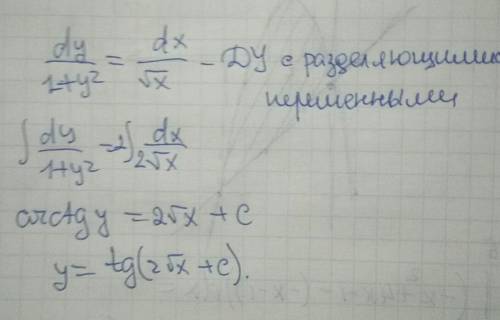 dy/(1+y²) = dx/√x – ДУ с разделяющимис
переменными
∫ dy/(1+y²) = 2∫ dx/(2√x)
arctg y = 2√x + C
y = tg(2√x + C).